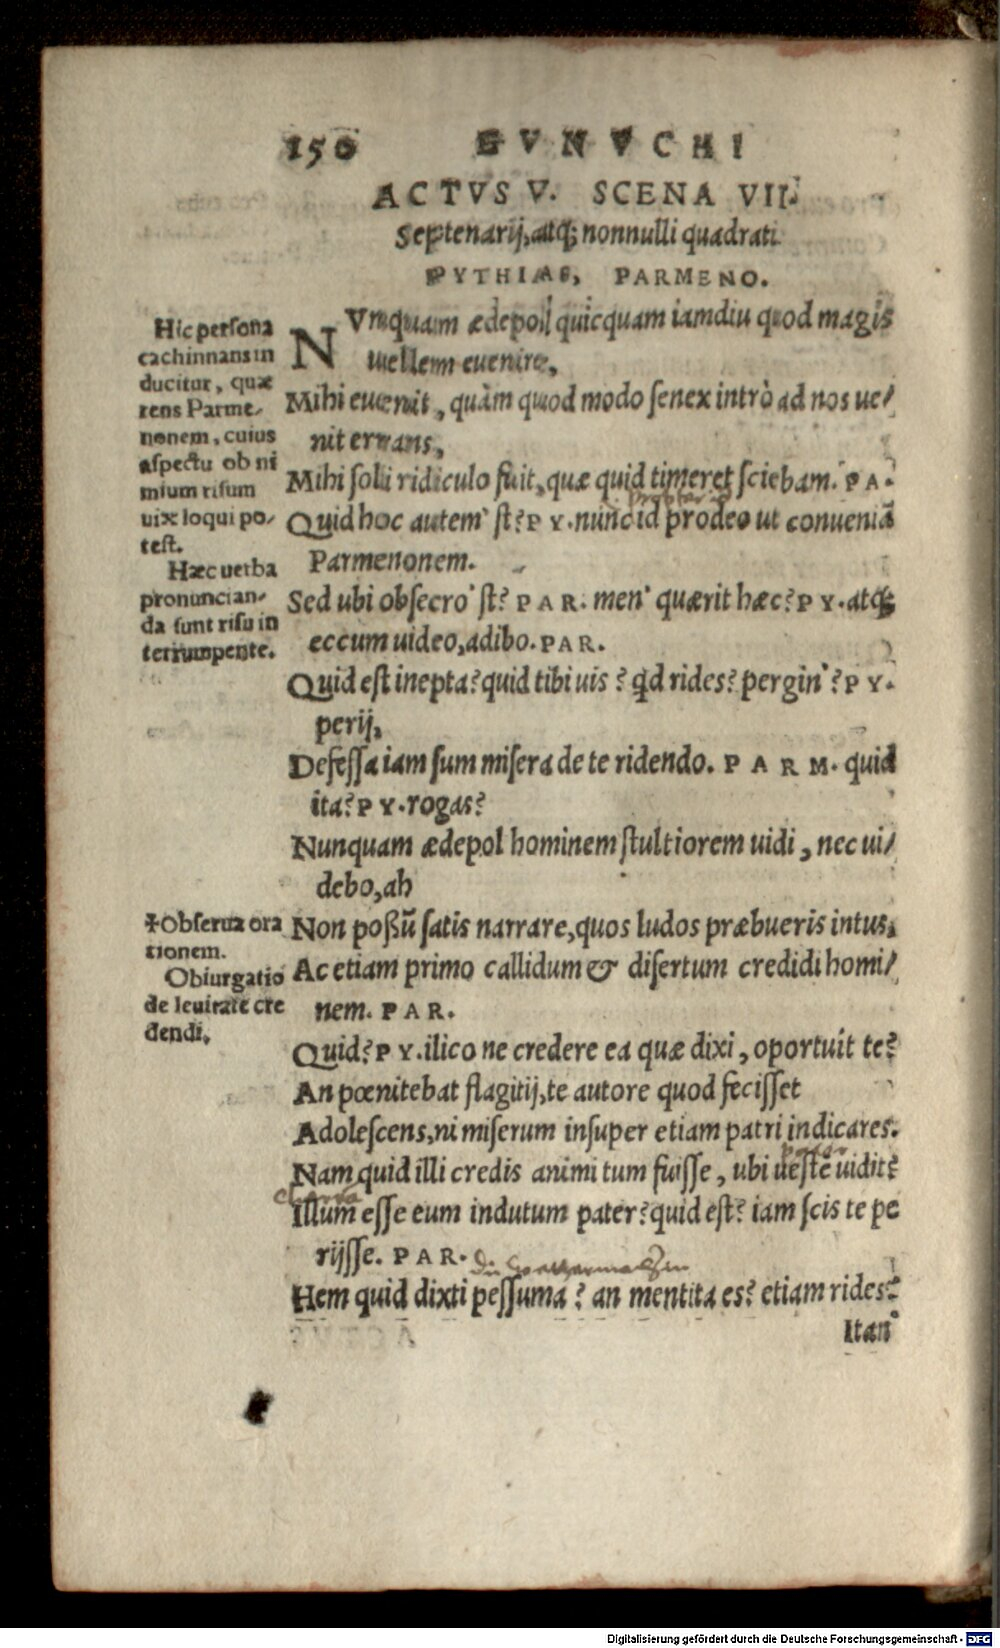 150 EVNVCHI
ACTVS V. SCENA VII.
Septenarij, atq; nonnulli quadrati
PYTHIAS, PARMENO.
NVnquam ædepol quicquam iamdiu quod magis
uellem euenire,
Mihi euenit, quàm quod modo senex intrò ad nos ue/
nit errans,
Mihi soli ridiculo fuit, quæ quid timeret sciebam. PA.
Quid hoc autem' st? PY. nunc id prodeo ut conueniã
Parmenonem.
Sed ubi obsecro' st? PAR. men' quærit hæc? PY. atq;
eccum uideo, adibo. PAR.
Quid est inepta? quid tibi uis? qd rides? pergin'? PY.
perij,
Defessa iam sum misera de te ridendo. PARM. quid
ita? PY. rogas?
Nunquam ædepol hominem stultiorem uidi, nec ui/
debo, ah
Non possũ satis narrare, quos ludos præbueris intus,
Ac etiam primo callidum & disertum credidi homi/
nem. PAR.
Quid? PY. ilico ne credere ea quæ dixi, oportuit te?
An pœnitebat flagitij, te autore quod fecisset
Adolescens, ni miserum insuper etiam patri indicares.
Nam quid illi credis animi tum fuisse, ubi uestẽ uidit
Illum esse eum indutum pater? quid est? iam scis te pe
rijsse. PAR.
Hem quid dixti pessuma? an mentita es? etiam rides?
Itan'
Hic persona
cachinnans in
ducitur, quæ
rens Parme/
nonem, cuius
aspectu ob ni
mium risum
uix loqui po/
test.
Hæc uerba
pronuncian/
da sunt risu in
terrumpente.
☨Obserua ora
tionem.
Obiurgatio
de leuitate cre
dendi.
Digitalisierung gefördert durch die Deutsche Forschungsgemeinschaft - DFG